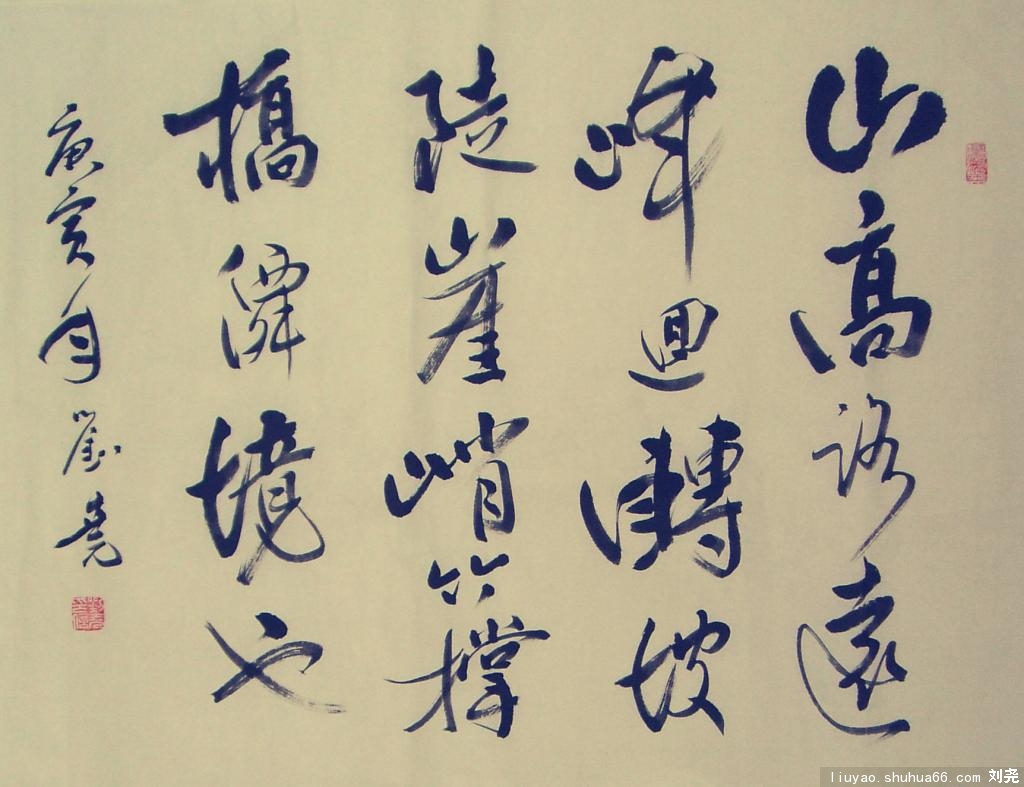 山高路遠
峰迴轉坡
陡崖峭撐
橋境也
庚寅年劉堯
liuyao.shuhua66.com 刘尧